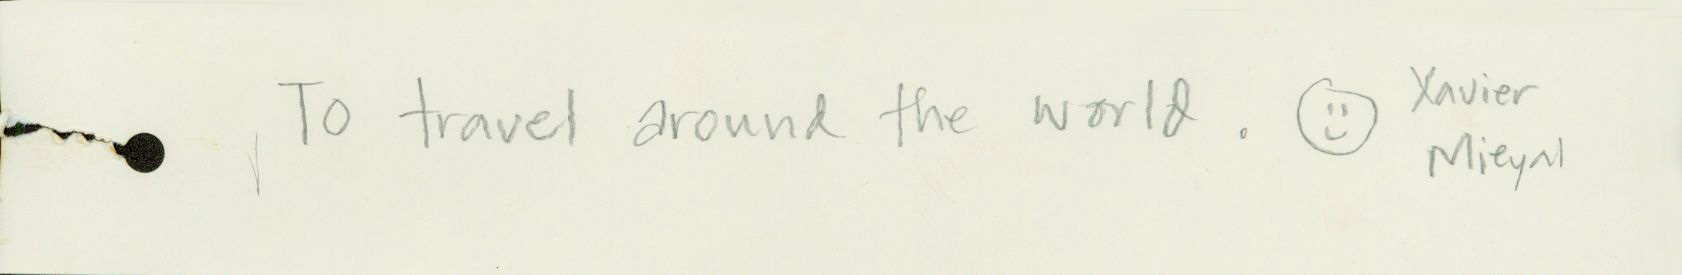 To travel around the world.
Xavier
Mieyal